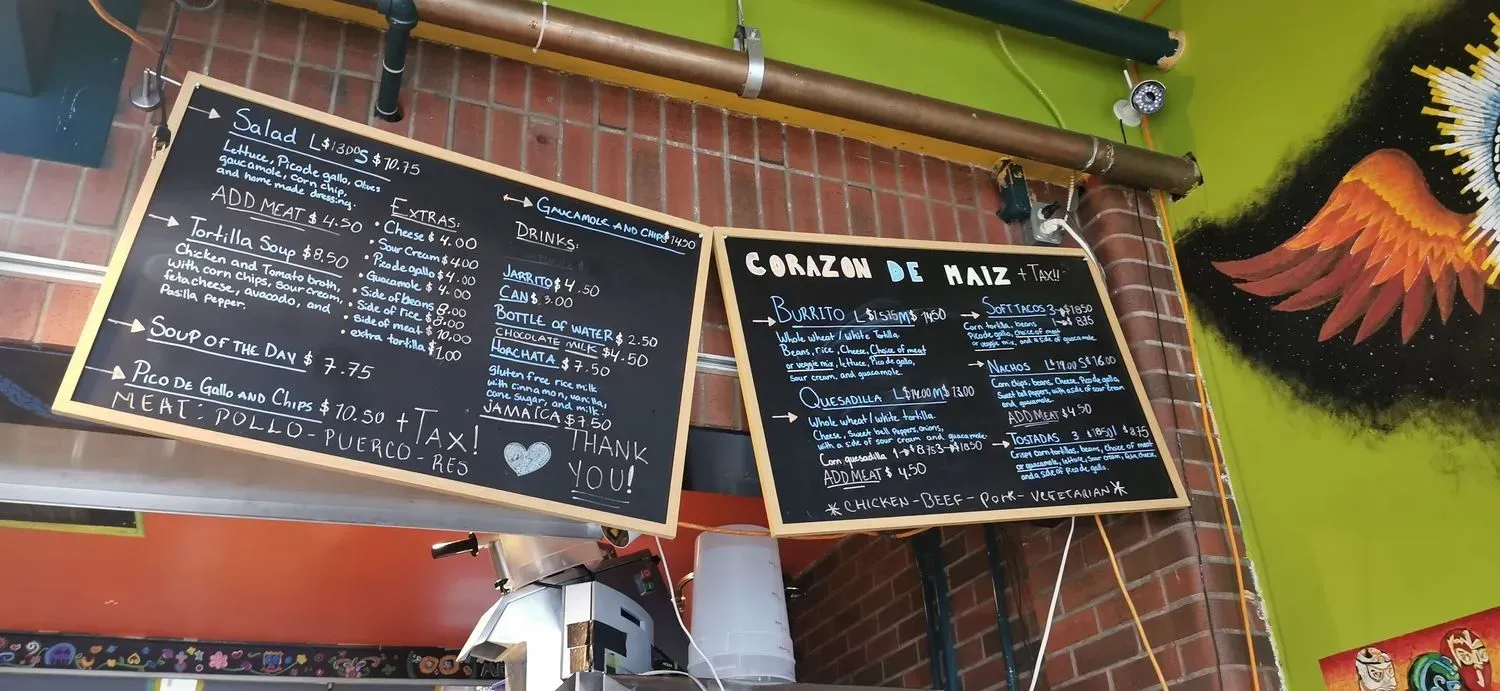 Salad L $13.00 S $10.75
Lettuce, Pico de gallo, Olives
gaucamole, corn chip,
and home made dressing.
ADD MEAT $4.50
Tortilla Soup $8.50
Chicken and Tomato broth,
with corn chips, sour cream,
feta cheese, avacado, and
Pasilla pepper.
SOUP OF THE DAY $7.75
PICO DE GALLO AND CHIPS $10.50 + TAX!
MEAT: POLLO-PUERCO-RES
EXTRAS:
• Cheese $4.00
• Sour Cream $4.00
• Pico de gallo $4.00
• Guacamole $4.00
• Side of beans 8.00
• Side of rice $8.00
• Side of meat $10.00
• extra tortilla $1.00
GAUCAMOLE AND CHIPS $14.50
DRINKS:
JARRITO $4.50
CAN $3.00
BOTTLE OF WATER $2.50
CHOCOLATE MILK $4.50
HORCHATA $7.50
gluten free rice milk
with cinnamon, vanilla,
cane sugar, and milk.
JAMAICA $7.50
THANK
YOU!
CORAZON DE MAIZ + TAX!!
BURRITO L $15.75 M $14.50
Whole wheat / white Tortilla
Beans, rice, Cheese, Choice of meat
or veggie mix, lettuce, Pico de gallo,
Sour cream, and guacamole.
QUESADILLA L $14.00 M $13.00
Whole wheat / white tortilla
Cheese, Sweet bell Peppers, onions,
with a side of sour cream and guacamole
Corn quesadilla 1→$8.75 3→$18.50
ADD MEAT $4.50
SOFT TACOS 3→$18.50
Corn tortilla, beans
Pico de gallo, choice of meat
or veggie mix, and a side of guacamole
NACHOS L $19.00 S $16.00
Corn chips, beans, Cheese, Pico de gallo,
Sweet bell peppers, with a side of sour cream
and guacamole.
ADD MEAT $4.50
TOSTADAS 3 $18.50 1 $8.75
Crispy corn tortillas, beans, Choice of meat
or guacamole, lettuce, sour cream, feta cheese,
and a side of Pico de gallo.
*CHICKEN-BEEF-PORK-VEGETARIAN*